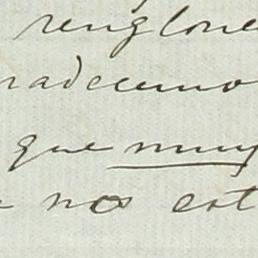 renglone
radecemo
que muy
nos est